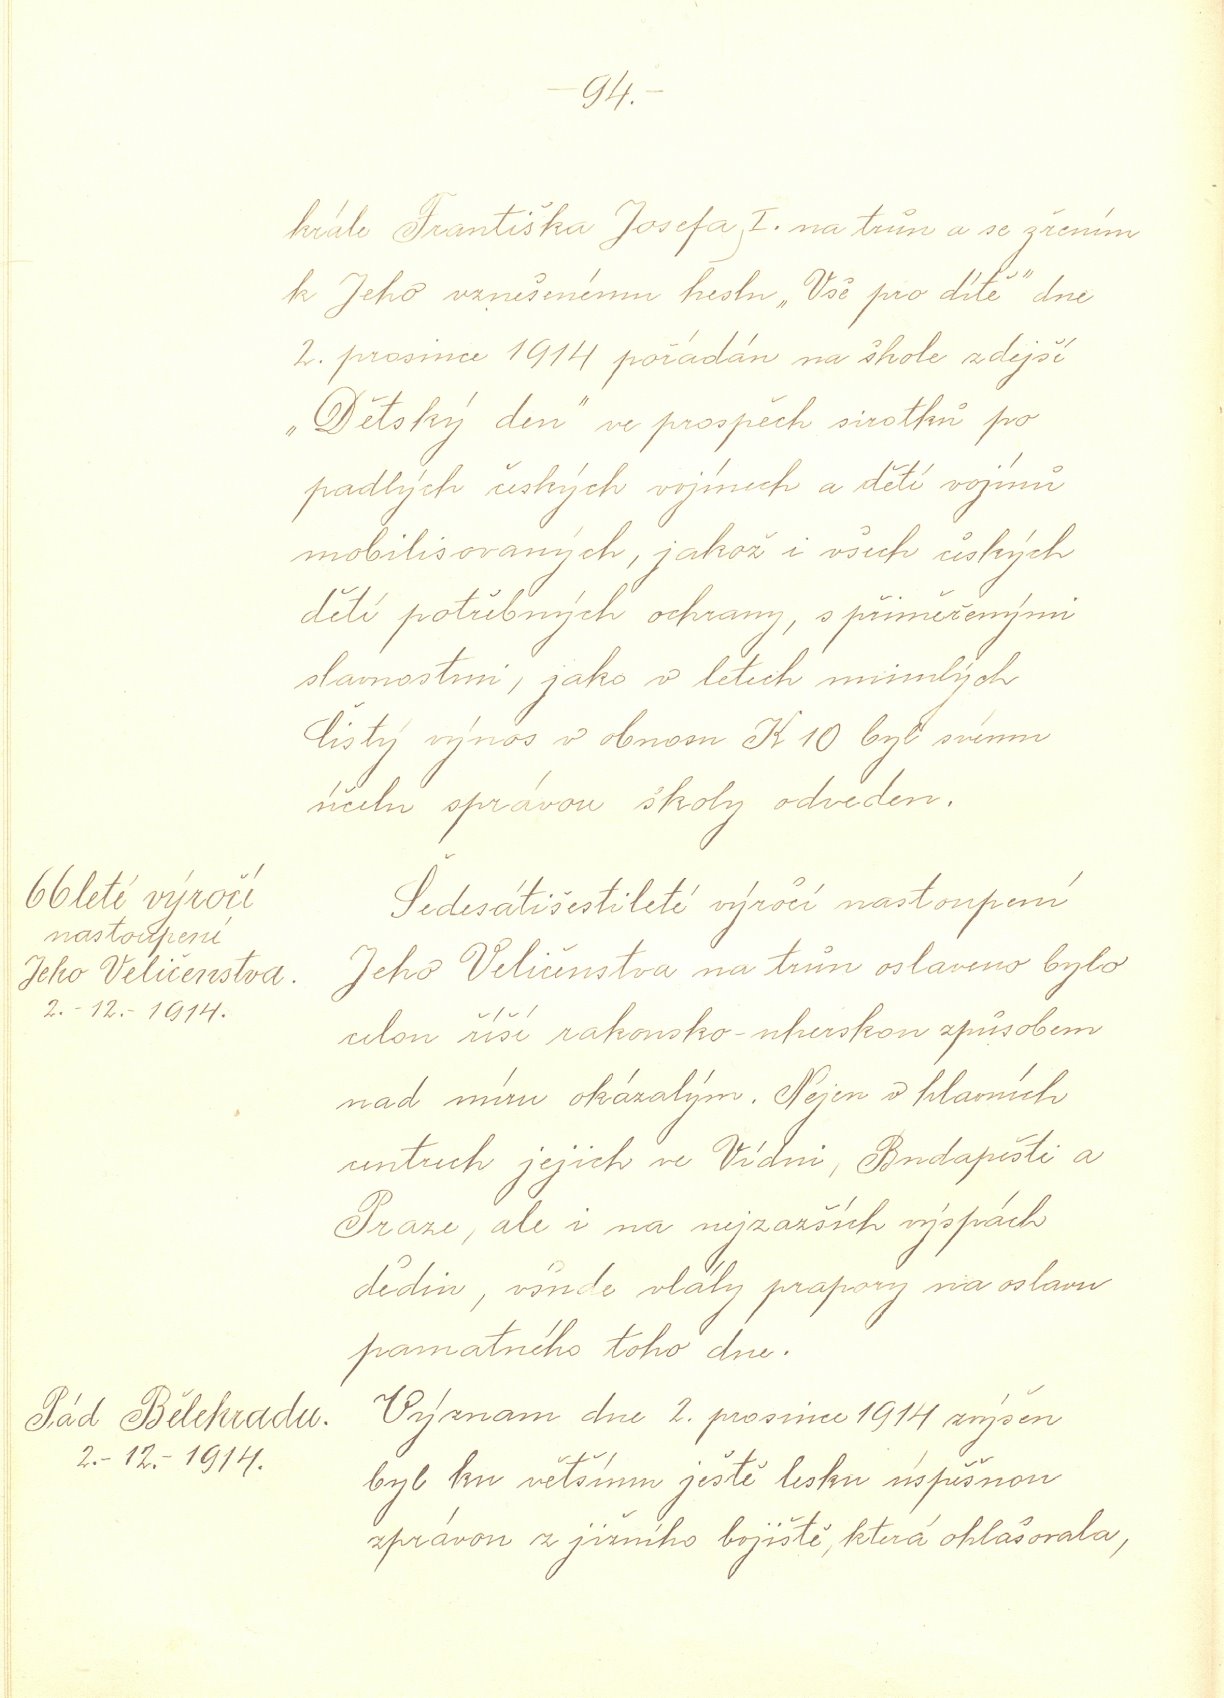 –94.–
krále Františka Josefa I. na trůn a se zřením
k Jeho vznešenému heslu „Vše pro dítě" dne
2. prosince 1914 pořádán na škole zdejší
„Dětský den" ve prospěch sirotků po
padlých českých vojínech a dětí vojínů
mobilisovaných, jakož i všech českých
dětí potřebných ochrany, s přiměřenými
slavnostmi, jako v letech minulých
Čistý výnos v obnosu K 10 byl svému
účelu správou školy odveden.
66leté výročí
nastoupení
Jeho Veličenstva.
2.-12.-1914.
Šedesátišestileté výročí nastoupení
Jeho Veličenstva na trůn oslaveno bylo
celou říší rakousko-uherskou způsobem
nad míru okázalým. Nejen v hlavních
centrech jejich ve Vídni, Budapešti a
Praze, ale i na nejzazších výspách
dědin, všude vlály prapory na oslavu
pamatného toho dne.
Pád Bělehradu.
2.-12.-1914.
Význam dne 2. prosince 1914 zvýšen
byl ku většímu ještě lesku úspěšnou
zprávou z jižního bojiště, která ohlašovala,